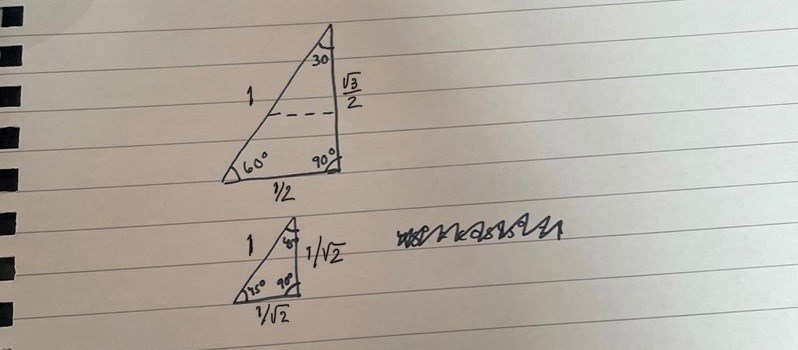 30
1
√3/2
60° 90°
1/2
1 45° 1/√2
45° 90°
1/√2